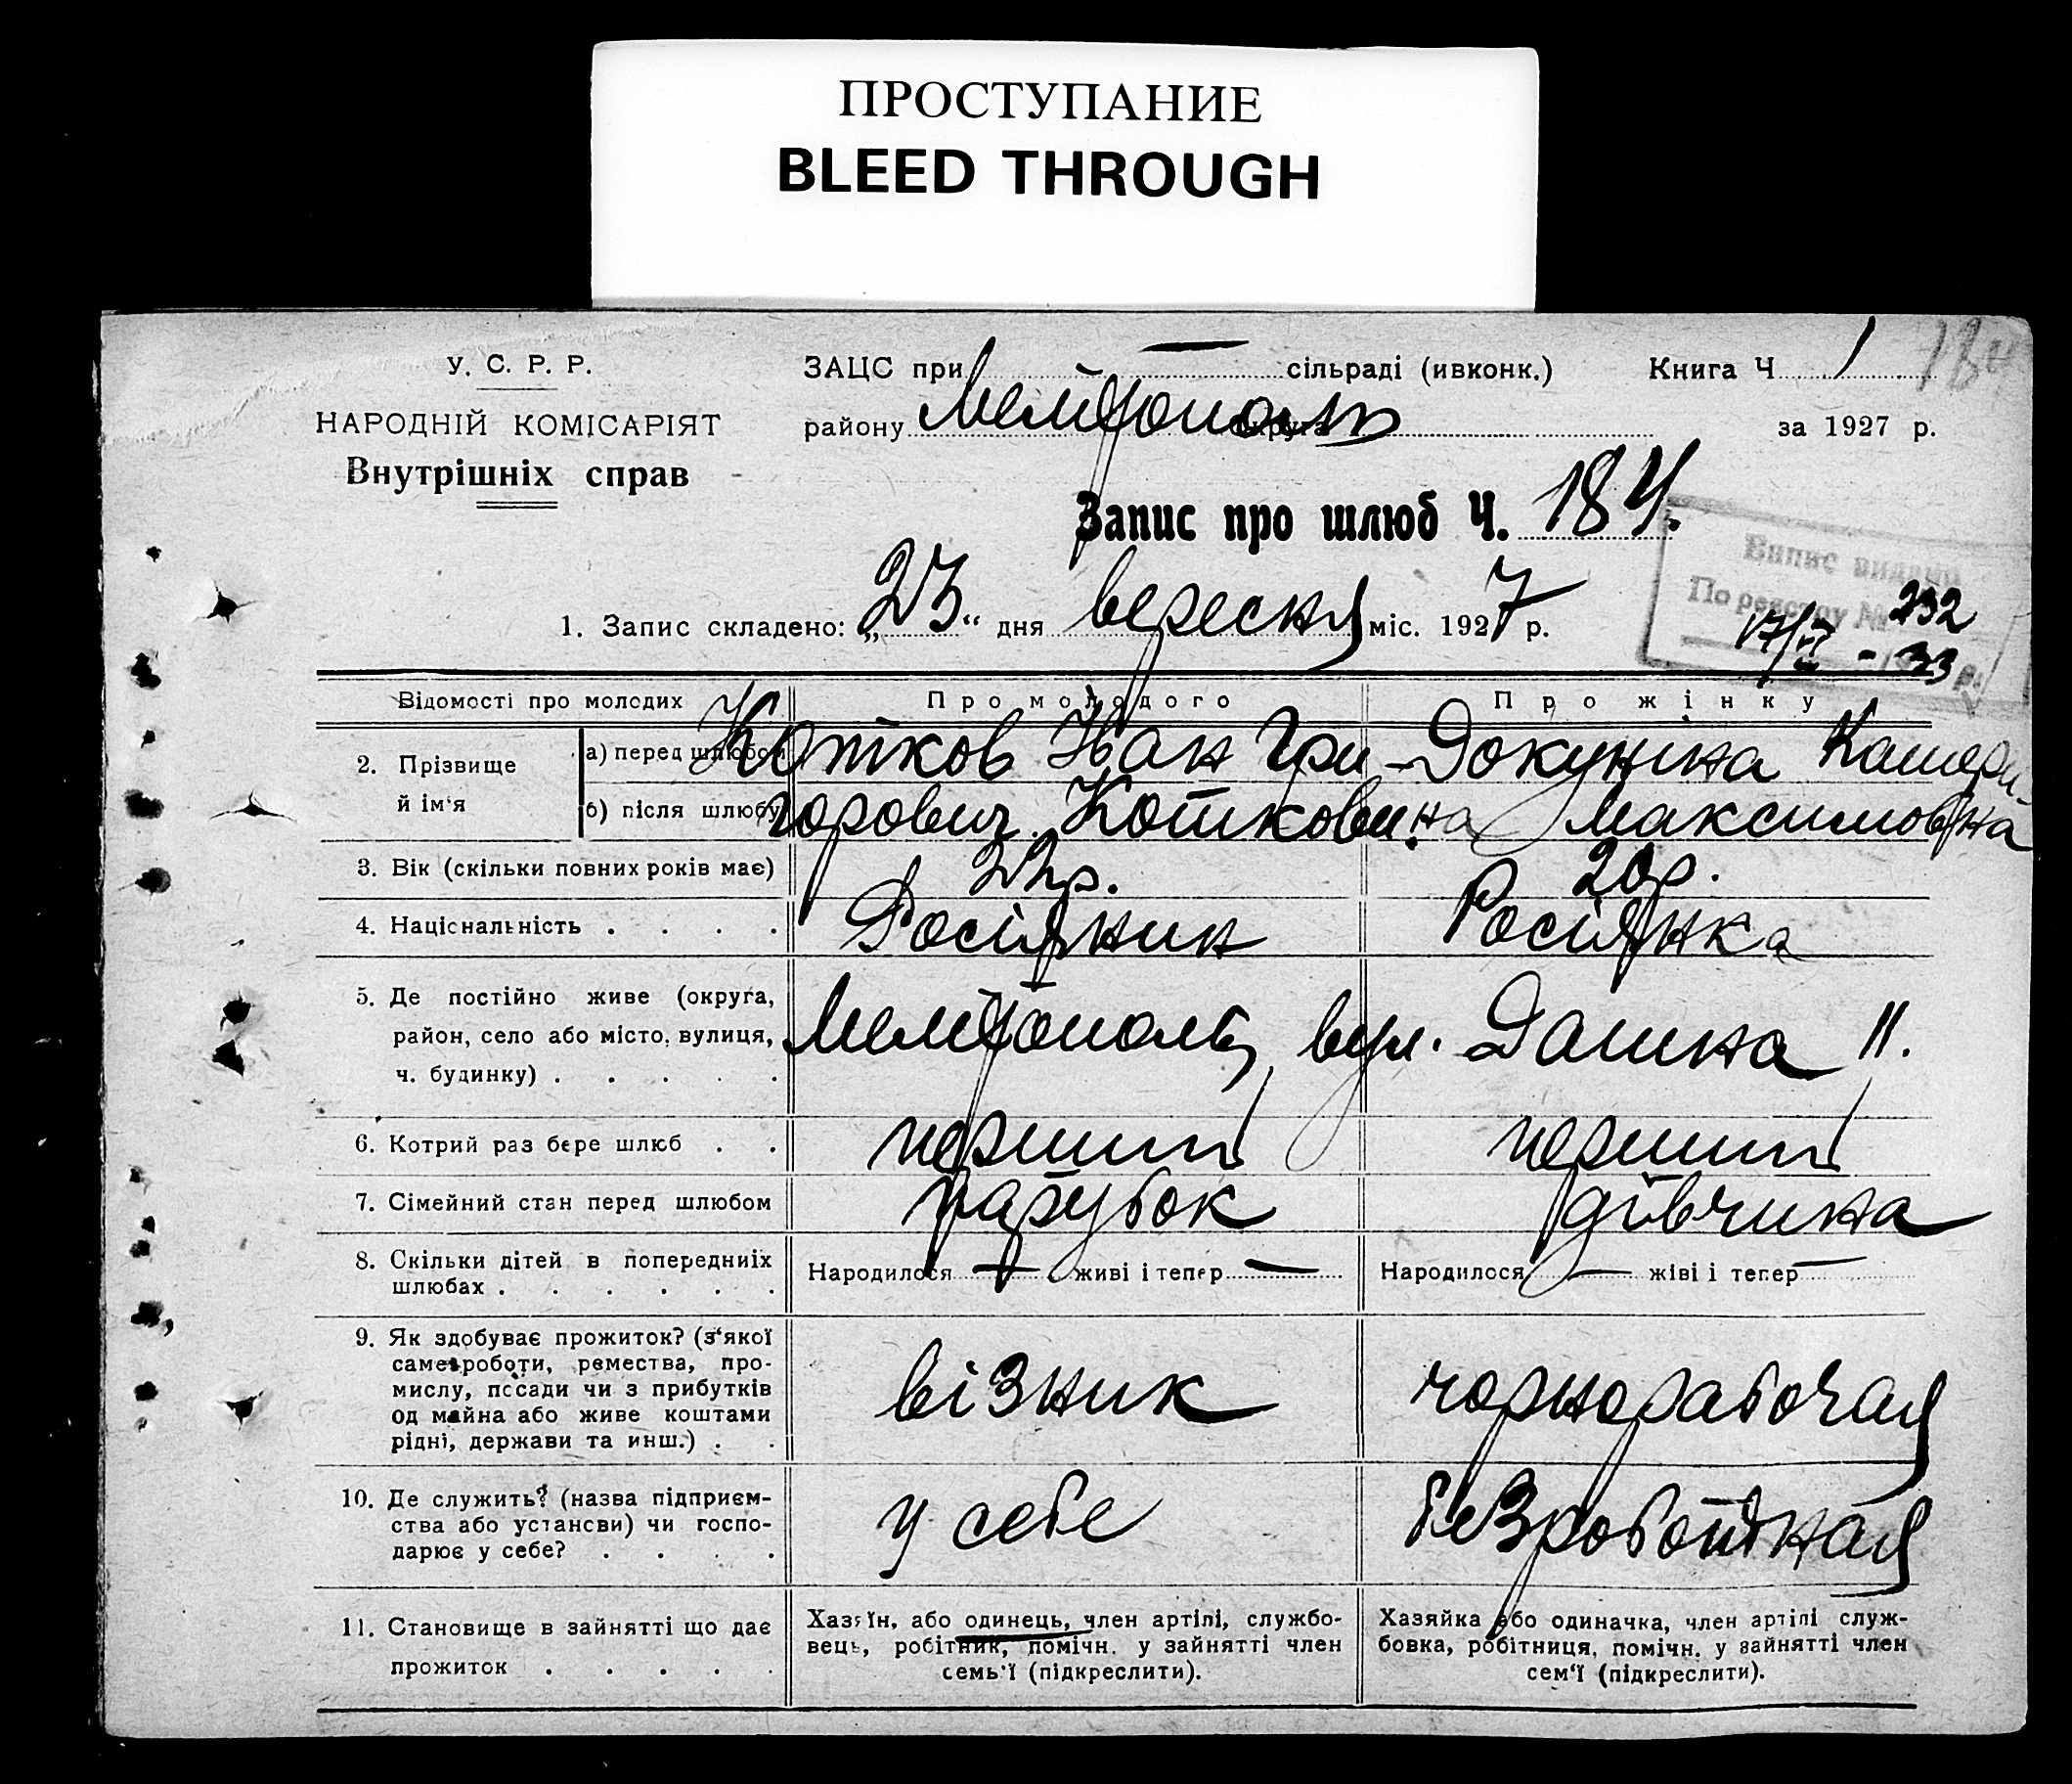 ПРОСТУПАНИЕ
BLEED THROUGH
У. С. Р. Р.
НАРОДНІЙ КОМІСАРІЯТ
Внутрішніх справ
ЗАЦС при — сільраді (ивконк.)
Книга Ч 1
району Мелітополь
за 1927 р.
Запис про шлюб Ч. 184.
Випис видано
По реєстру № 232
17/VI - 33 р.
1. Запис складено: „23“ дня вересня міс. 1927 р.
Відомості про молодих Про молодого Про жінку
2. Прізвище й ім‘я
а) перед шлюбом Котков Іван Гри- Докукина Катери-
б) після шлюбу горович. Коткови. на Максимовна
3. Вік (скільки повних років має) 22р. 20р.
4. Національність . . . . Росіянин Росіянка
5. Де постійно живе (округа,
район, село або місто, вулиця, Мелітополь, вул. Дашка 11.
ч. будинку) . . . . .
6. Котрий раз бере шлюб . . перший перший
7. Сімейний стан перед шлюбом парубок дівчина
8. Скільки дітей в попередниіх
шлюбах . . . . . . Народилося — живі і тепер — Народилося — жіві і тепер —
9. Як здобуває прожиток? (з‘якої
саме роботи, ремества, про-
мислу, посади чи з прибутків
од майна або живе коштами
рідні, держави та инш.) . .
візник чорнорабочая
10. Де служить? (назва підприєм-
ства або установи) чи госпо-
дарює у себе? . . . .
у себе безроботная
11. Становище в зайнятті що дає
прожиток . . . . .
Хазяїн, або одинець, член артілі, службо-
вець, робітник, помічн. у зайнятті член
семь‘ї (підкреслити).
Хазяйка або одиначка, член артілі служ-
бовка, робітниця, помічн. у зайнятті член
сем‘ї (підкреслити).